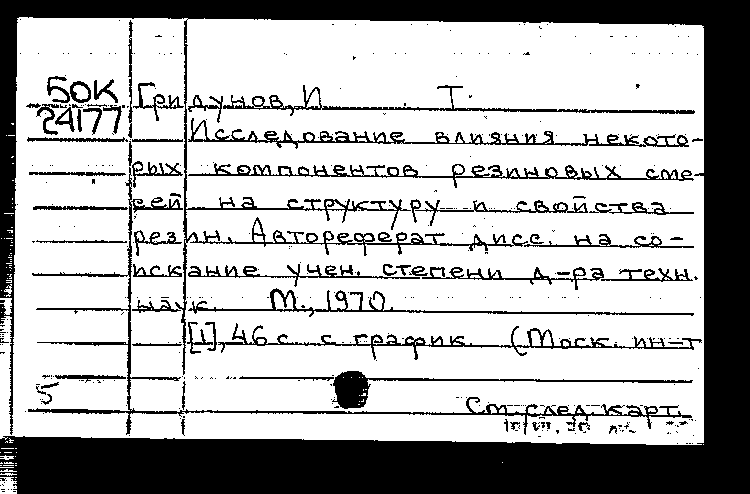 50К Гридунов, И. Т.
24177
Исследование влияния некото-
рых компонентов резиновых сме-
сей на структуру и свойства
резин. Автореферат дисс. на со-
искание учен. степени д-ра техн.
наук. М., 1970.
[1], 46 с. с график. (Моск. ин-т
5
См. след. карт.